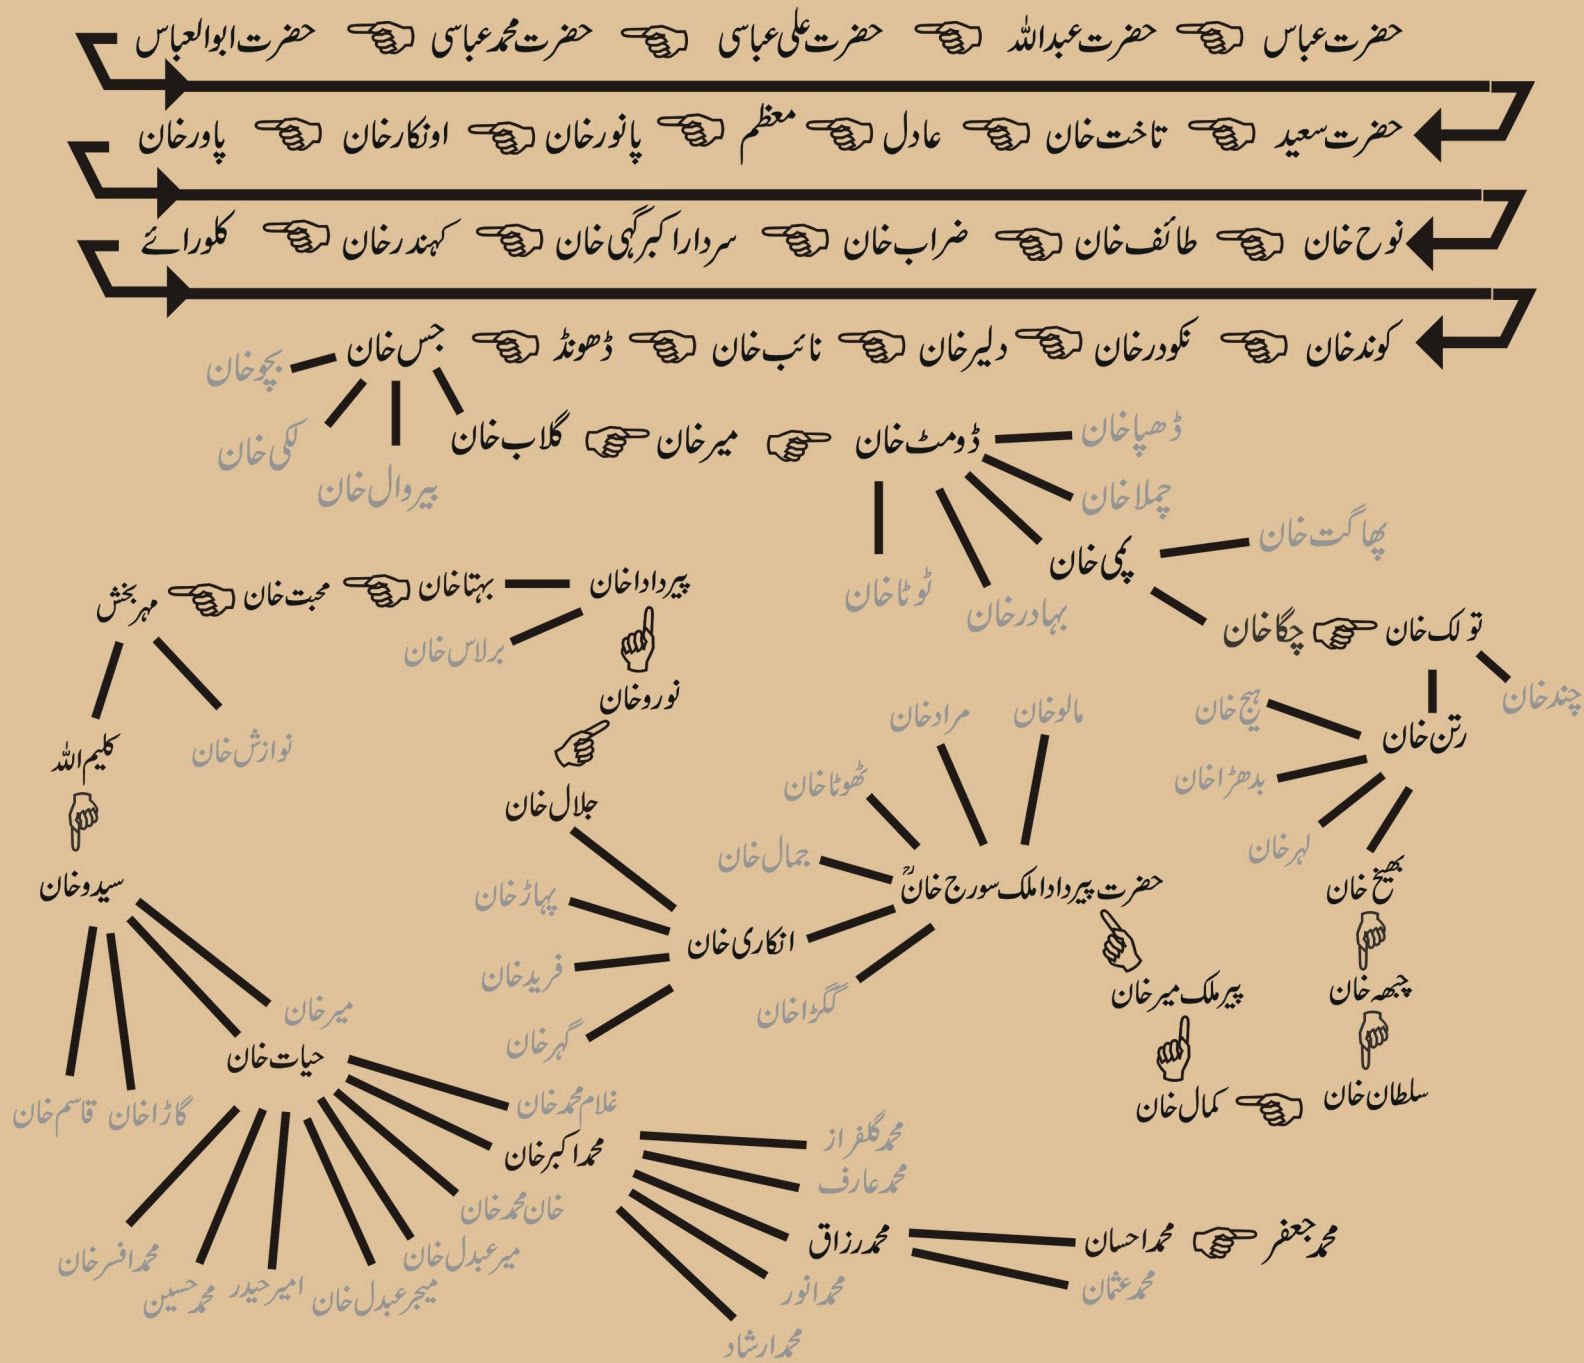 حضرت عباس حضرت عبداللہ حضرت علی عباسی حضرت محمد عباسی حضرت ابوالعباس
حضرت سعید تاخت خان عادل معظم پانور خان اونکار خان پاور خان
نوح خان طائف خان ضراب خان سردار اکبر گہی خان کہندر خان کلورائے
کوند خان نکودر خان دلیر خان نائب خان ڈھونڈ جس خان
بچو خان
لکی خان
بیروال خان
گلاب خان میر خان ڈومٹ خان
ڈھپا خان
چملا خان
پمی خان
بہادر خان
ٹوٹا خان
پھاگت خان
چگا خان تولک خان
چند خان
رتن خان
ہیج خان
بدھڑا خان
لہر خان
بھیخ خان
چبھہ خان
سلطان خان
کمال خان
پیر ملک میر خان
حضرت پیر دادا ملک سورج خانؒ
مالو خان
مراد خان
ٹھوٹا خان
جمال خان
گگڑا خان
انکاری خان
پہاڑ خان
فرید خان
گہر خان
جلال خان
نورو خان
پیر دادا خان
برلاس خان
بہتا خان محبت خان مہر بخش
نوازش خان
کلیم اللہ
سیدو خان
قاسم خان
گاڑا خان
میر خان
حیات خان
غلام محمد خان
محمد اکبر خان
خان محمد خان
میر عبدل خان
میجر عبدل خان
امیر حیدر
محمد حسین
محمد افسر خان
محمد گلفراز
محمد عارف
محمد رزاق
محمد انور
محمد ارشاد
محمد احسان محمد جعفر
محمد عثمان